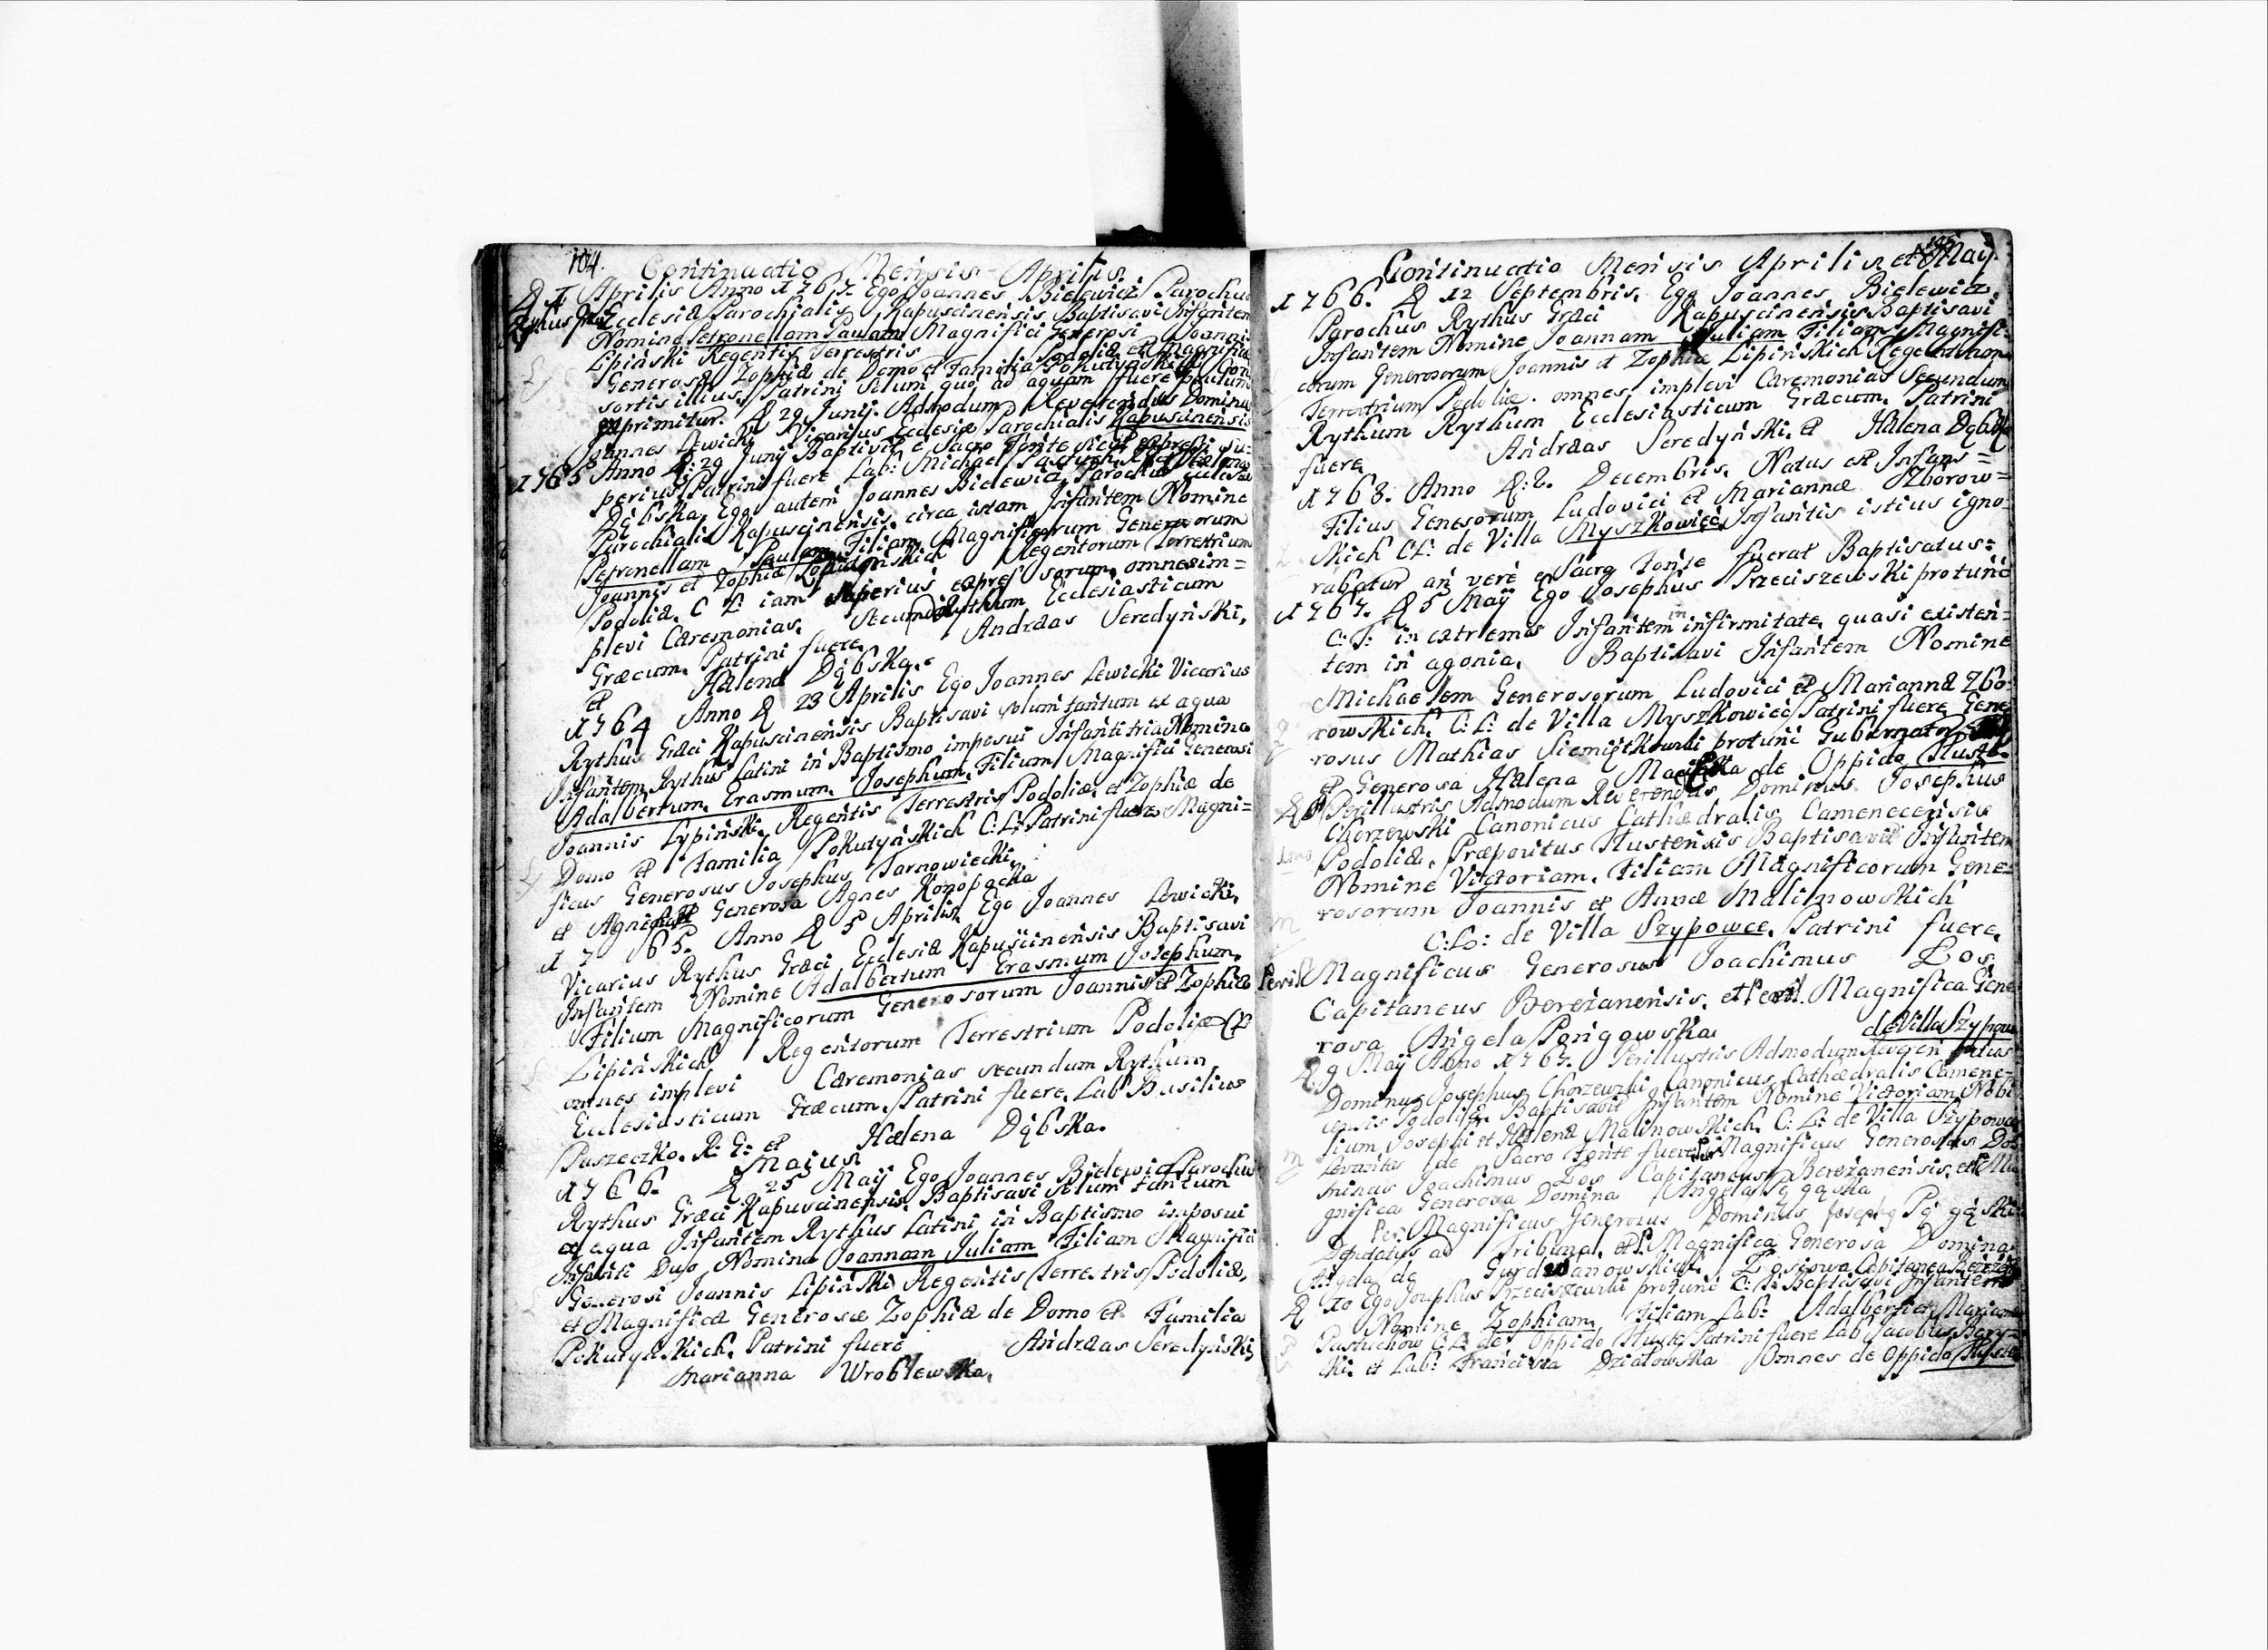 104.
Continuatio Mensis Aprilis.
Aprilis Anno 1767. Ego Joannes Bielewicz Parochus
Ecclesiæ Parochialis Kapuscinensis Baptisavi Infantem
Nomine Petronellam Paulam Magnifici Generosi Joannis
Lipinski Regentis Terrestris Podoliæ et Magnificæ
Generosæ Zophiæ de Domo et Familia
sortis illius. Patrini solum quo ad aquam fuere
exprimitur. D 29 Junij. Admodum Reverendus Dominus
Joannes Lewicki Vicarius Ecclesiæ Parochialis Kapuscinensis
1765 Anno D: 29 Junij Baptivit e Sacro Fonte sicut expressi su-
perius Patrini fuere Lab: Michael
Dąbska. Ego autem Joannes Bielewicz Parochus
Parochialis Kapuscinensis circa istam Infantem Nomine
Petronellam Paulam Filiam Magnificorum Generosorum
Joannis et Zophiæ Regentorum Terrestrium
Podoliæ. C L iam superius expressorum, omnes im=
plevi Cæremonias. Secundum Rythum Ecclesiasticum
Græcum. Patrini fuere Andræas Seredyński,
et Hælena Dąbska.
1764 Anno D 23 Aprilis Ego Joannes Lewicki Vicarius
Rythus Græci Kapuscinensis Baptisavi solum tantum ex aqua
Infantem Rythus Latini in Baptismo imposui Infanti tria Nomina
Adalbertum. Erasmum. Josephum. Filium Magnifici Generosi
Joannis Lypiński Regentis Terrestris Podoliæ. et Zophiæ de
Domo et Familia Pokutyńskich C: L: Patrini fuere Magni=
ficus Generosus Josephus Tarnowiecki,
et Generosa Agnes Konopacka
1765. Anno D 5 Aprilis Ego Joannes Lewicki,
Vicarius Rythus Græci Ecclesiæ Kapuscinensis Baptisavi
Infantem Nomine Adalbertum Erasmum Josephum.
Filium Magnificorum Generosorum Joannis et Zophiæ
Lipińskich Regentorum Terrestrium Podoliæ
omnes implevi Cæremonias secundum Rythum
Ecclesiasticum Græcum. Patrini fuere. Lab Basilius
Paszeczko. R: G: et Hælena Dąbska.
Maius.
1766. D 25 Maij Ego Joannes Bielewicz Parochus
Rythus Græci Kapuscinensis. Baptisavi Solum tantum
ex aqua Infantem Rythus Latini in Baptismo imposui
Infanti Duo Nomina Joannam Juliam Filiam Magnifici
Generosi Joannis Lipiński Regentis Terrestris Podoliæ,
et Magnificæ Generosæ Zophiæ de Domo et Familia
Pokutyńskich. Patrini fuere Andræas Seredyński,
Marianna Wroblewska.
105
Continuatio Mensis Aprilis et Maij.
1766. D 12 Septembris. Ego Joannes Bielewicz.
Parochus Rythus Græci Kapuscinensis Baptisavi
Infantem Nomine Joannam Juliam Filiam Magnifi=
corum Generosorum Joannis et Zophiæ Lipińskich
Terrestrium Podoliæ. omnes implevi Cæremonias Secundum
Rythum Rythum Ecclesiasticum Græcum. Patrini
fuere Andræas Seredyński. et Hælena
1768. Anno D: 2. Decembris. Natus est Infans=
Filius Generosorum Ludovici et Mariannæ Zborow=
skich C L: de Villa Myszkowice, Infantis istius igno-
rabatur an vere e Sacro Fonte fuerat Baptisatus:
1767. D 5 Maij Ego Josephus Przeciszewski protunc
C: L: in extrema Infantem in infirmitate, quasi existen=
tem in agonia. Baptisavi Infantem Nomine
Michaelem Generosorum Ludovici et Mariannæ Zbo-
rowskich. C: L: de Villa Myszkowiec Patrini fuere Gene
rosus Mathias protunc Gubernator
et Generosa Hælena de Oppido
Perillustris Admodum Reverendus Dominus Josephus
Chorzewski Canonicus Cathædralis Camenecensis
Podoliæ, Præpositus Tlustensis Baptisavit Infantem
Nomine Victoriam. Filiam Magnificorum Gene=
rosorum Joannis et Annæ Malinowskich
C: L: de Villa Szypowce. Patrini fuere,
Magnificus Generosus Joachimus Łos,
Capitaneus Bereżanensis. et Magnifica Gene
rosa Angela Pongowska de Villa
D. 9 Maij Anno 1767. Perillustris Admodum
Dominus Josephus Chorzewski Canonicus Cathædralis Camene-
censis Podoliæ Baptisavit Infantem Nomine Victoriam Nobi
lium Josephi et Hælenæ Malinowskich. C: L: de Villa
Levantes de Sacro Fonte fuere Magnificus Generosus Do
minus Joachimus Łos Capitaneus Bereżanensis, et Ma
gnifica Generosa Domina Angela
Magnificus Generosus Dominus Joseph
Deputatus ad Tribunal, et Magnifica Generosa Domina
Angela de Łosiowa Capitanea
D 10 Ego Josephus Przeciszewski protunc C: L: Baptisavi Infantem
Nomine Zophiam Filiam Lab: Adalberti et
Pastuchow C L: de Oppido Patrini fuere Lab Jacobus
ski. et Lab: Działowska Omnes de Oppido